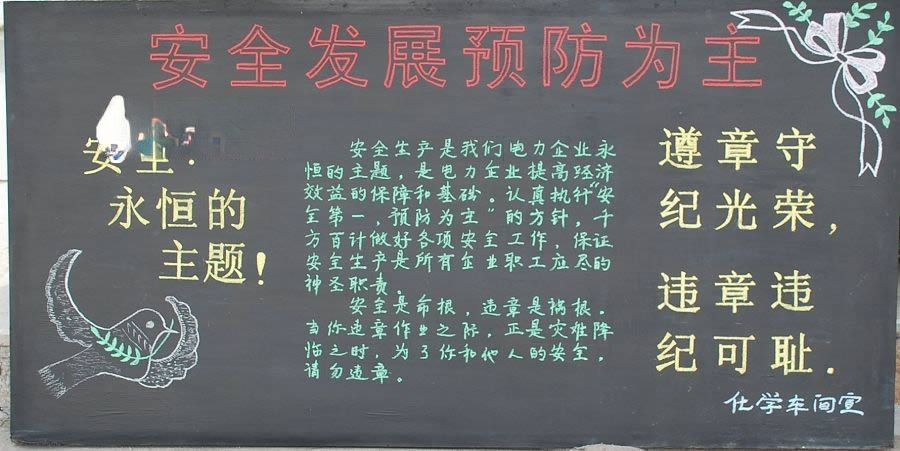 安全发展预防为主
安全·
永恒的
主题！
安全生产是我们电力企业永
恒的主题，是电力企业提高经济
效益的保障和基础。认真执行“安
全第一，预防为主”的方针，千
方百计做好各项安全工作，保证
安全生产是所有企业职工应尽的
神圣职责。
安全是命根，违章是祸根。
当你违章作业之际，正是灾难降
临之时，为了你和他人的安全，
请勿违章。
遵章守
纪光荣，
违章违
纪可耻.
化学车间宣